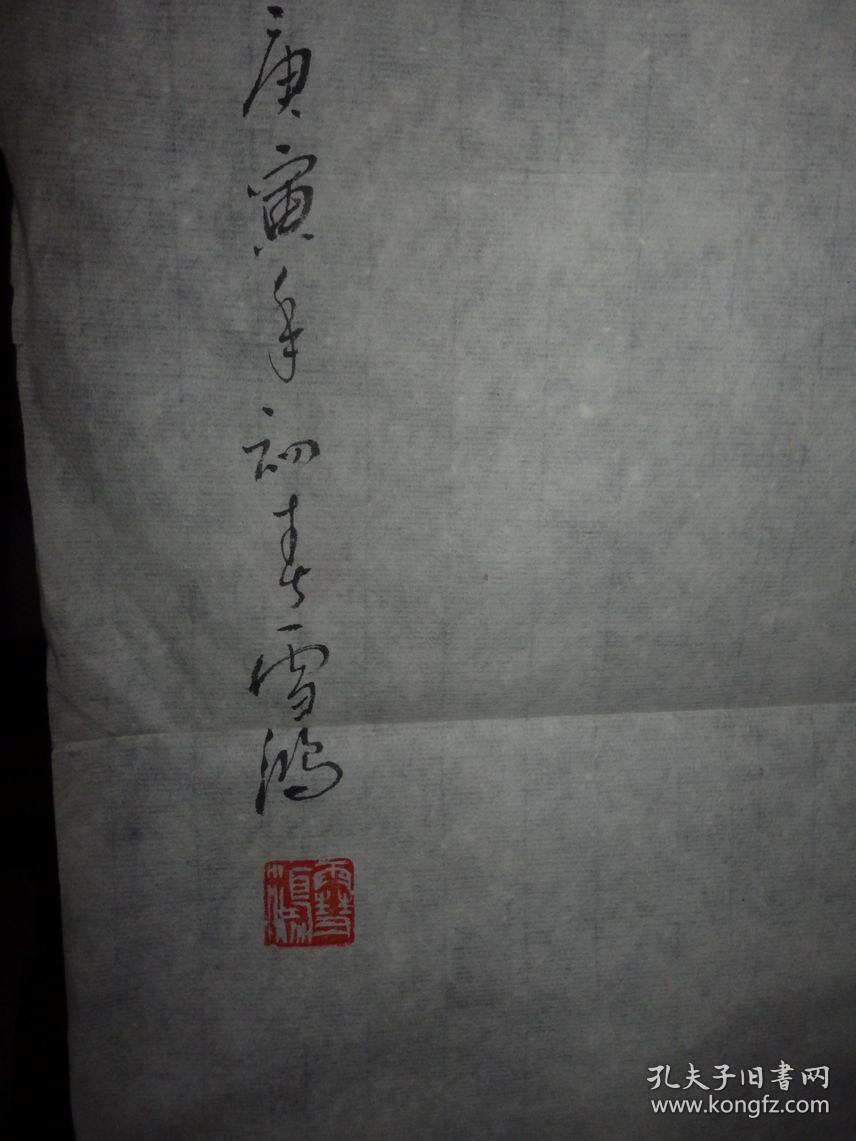 庚寅年初春雪鸿
雪鸿
孔夫子旧書网
www.kongfz.com